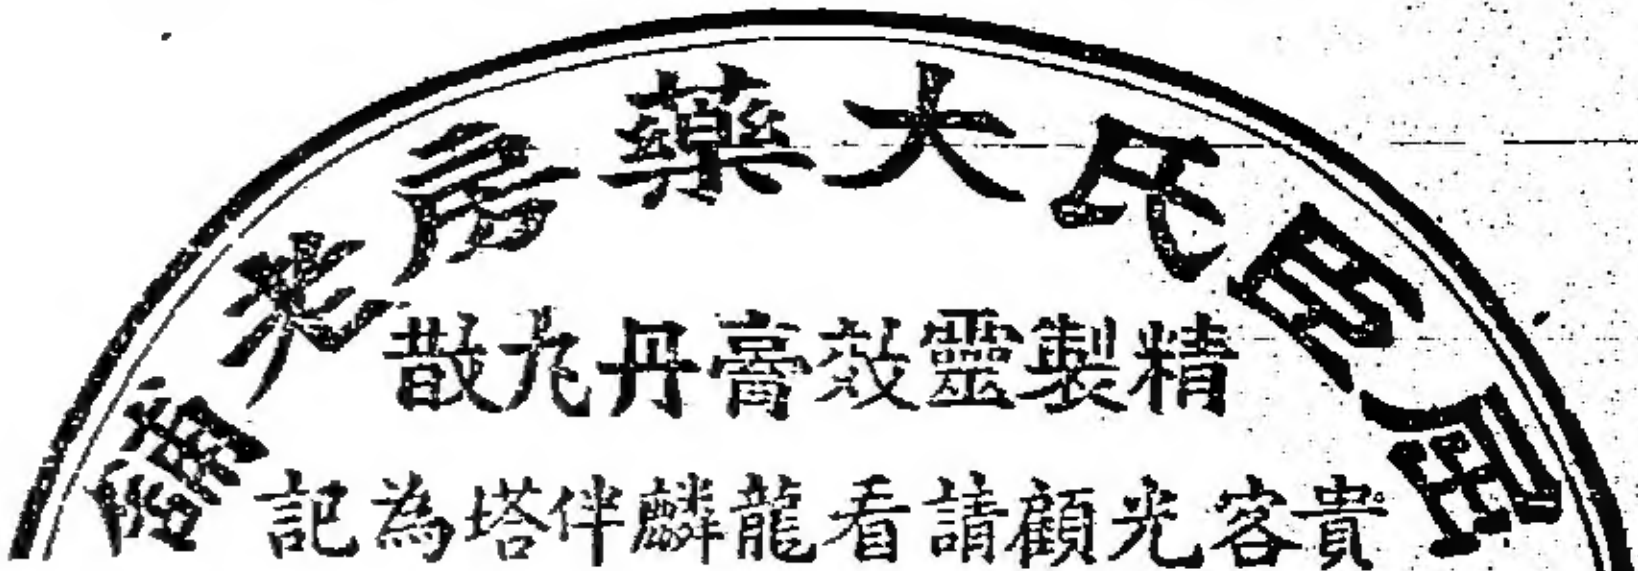 屈臣氏大藥房老鋪
精製靈效膏丹丸散
貴客光顧請看龍麟伴塔為記